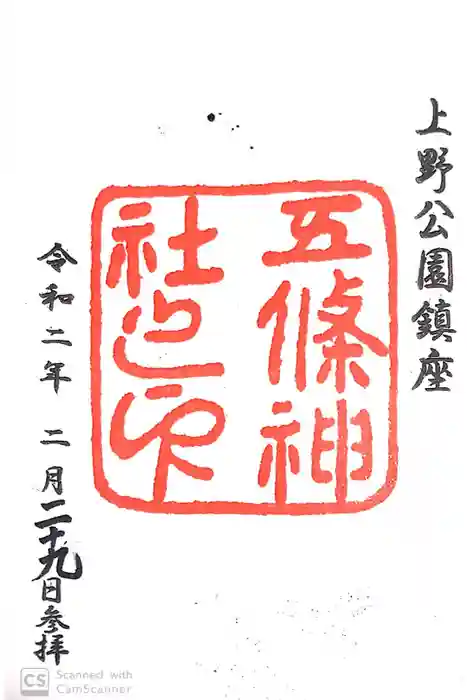 上野公園鎮座
五條神
社之印
令和二年 二月二十九日参拝
CS Scanned with
CamScanner